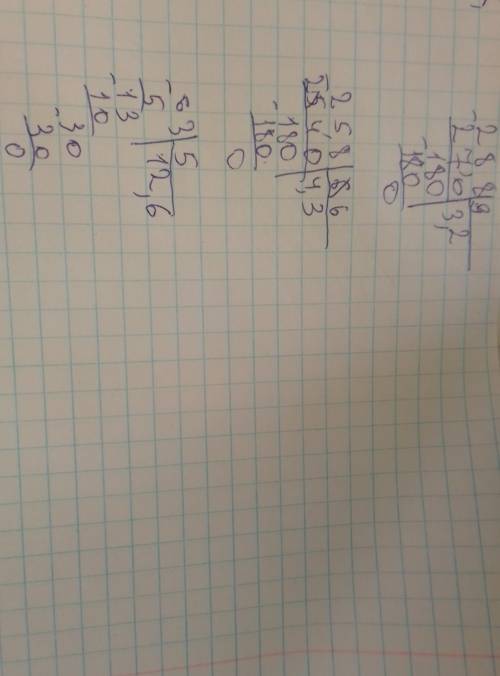 -288|9
270|3,2
-180
180
0
258|86
240|4,3
-180
180
0
-63|5
5|12,6
-13
10
-30
30
0